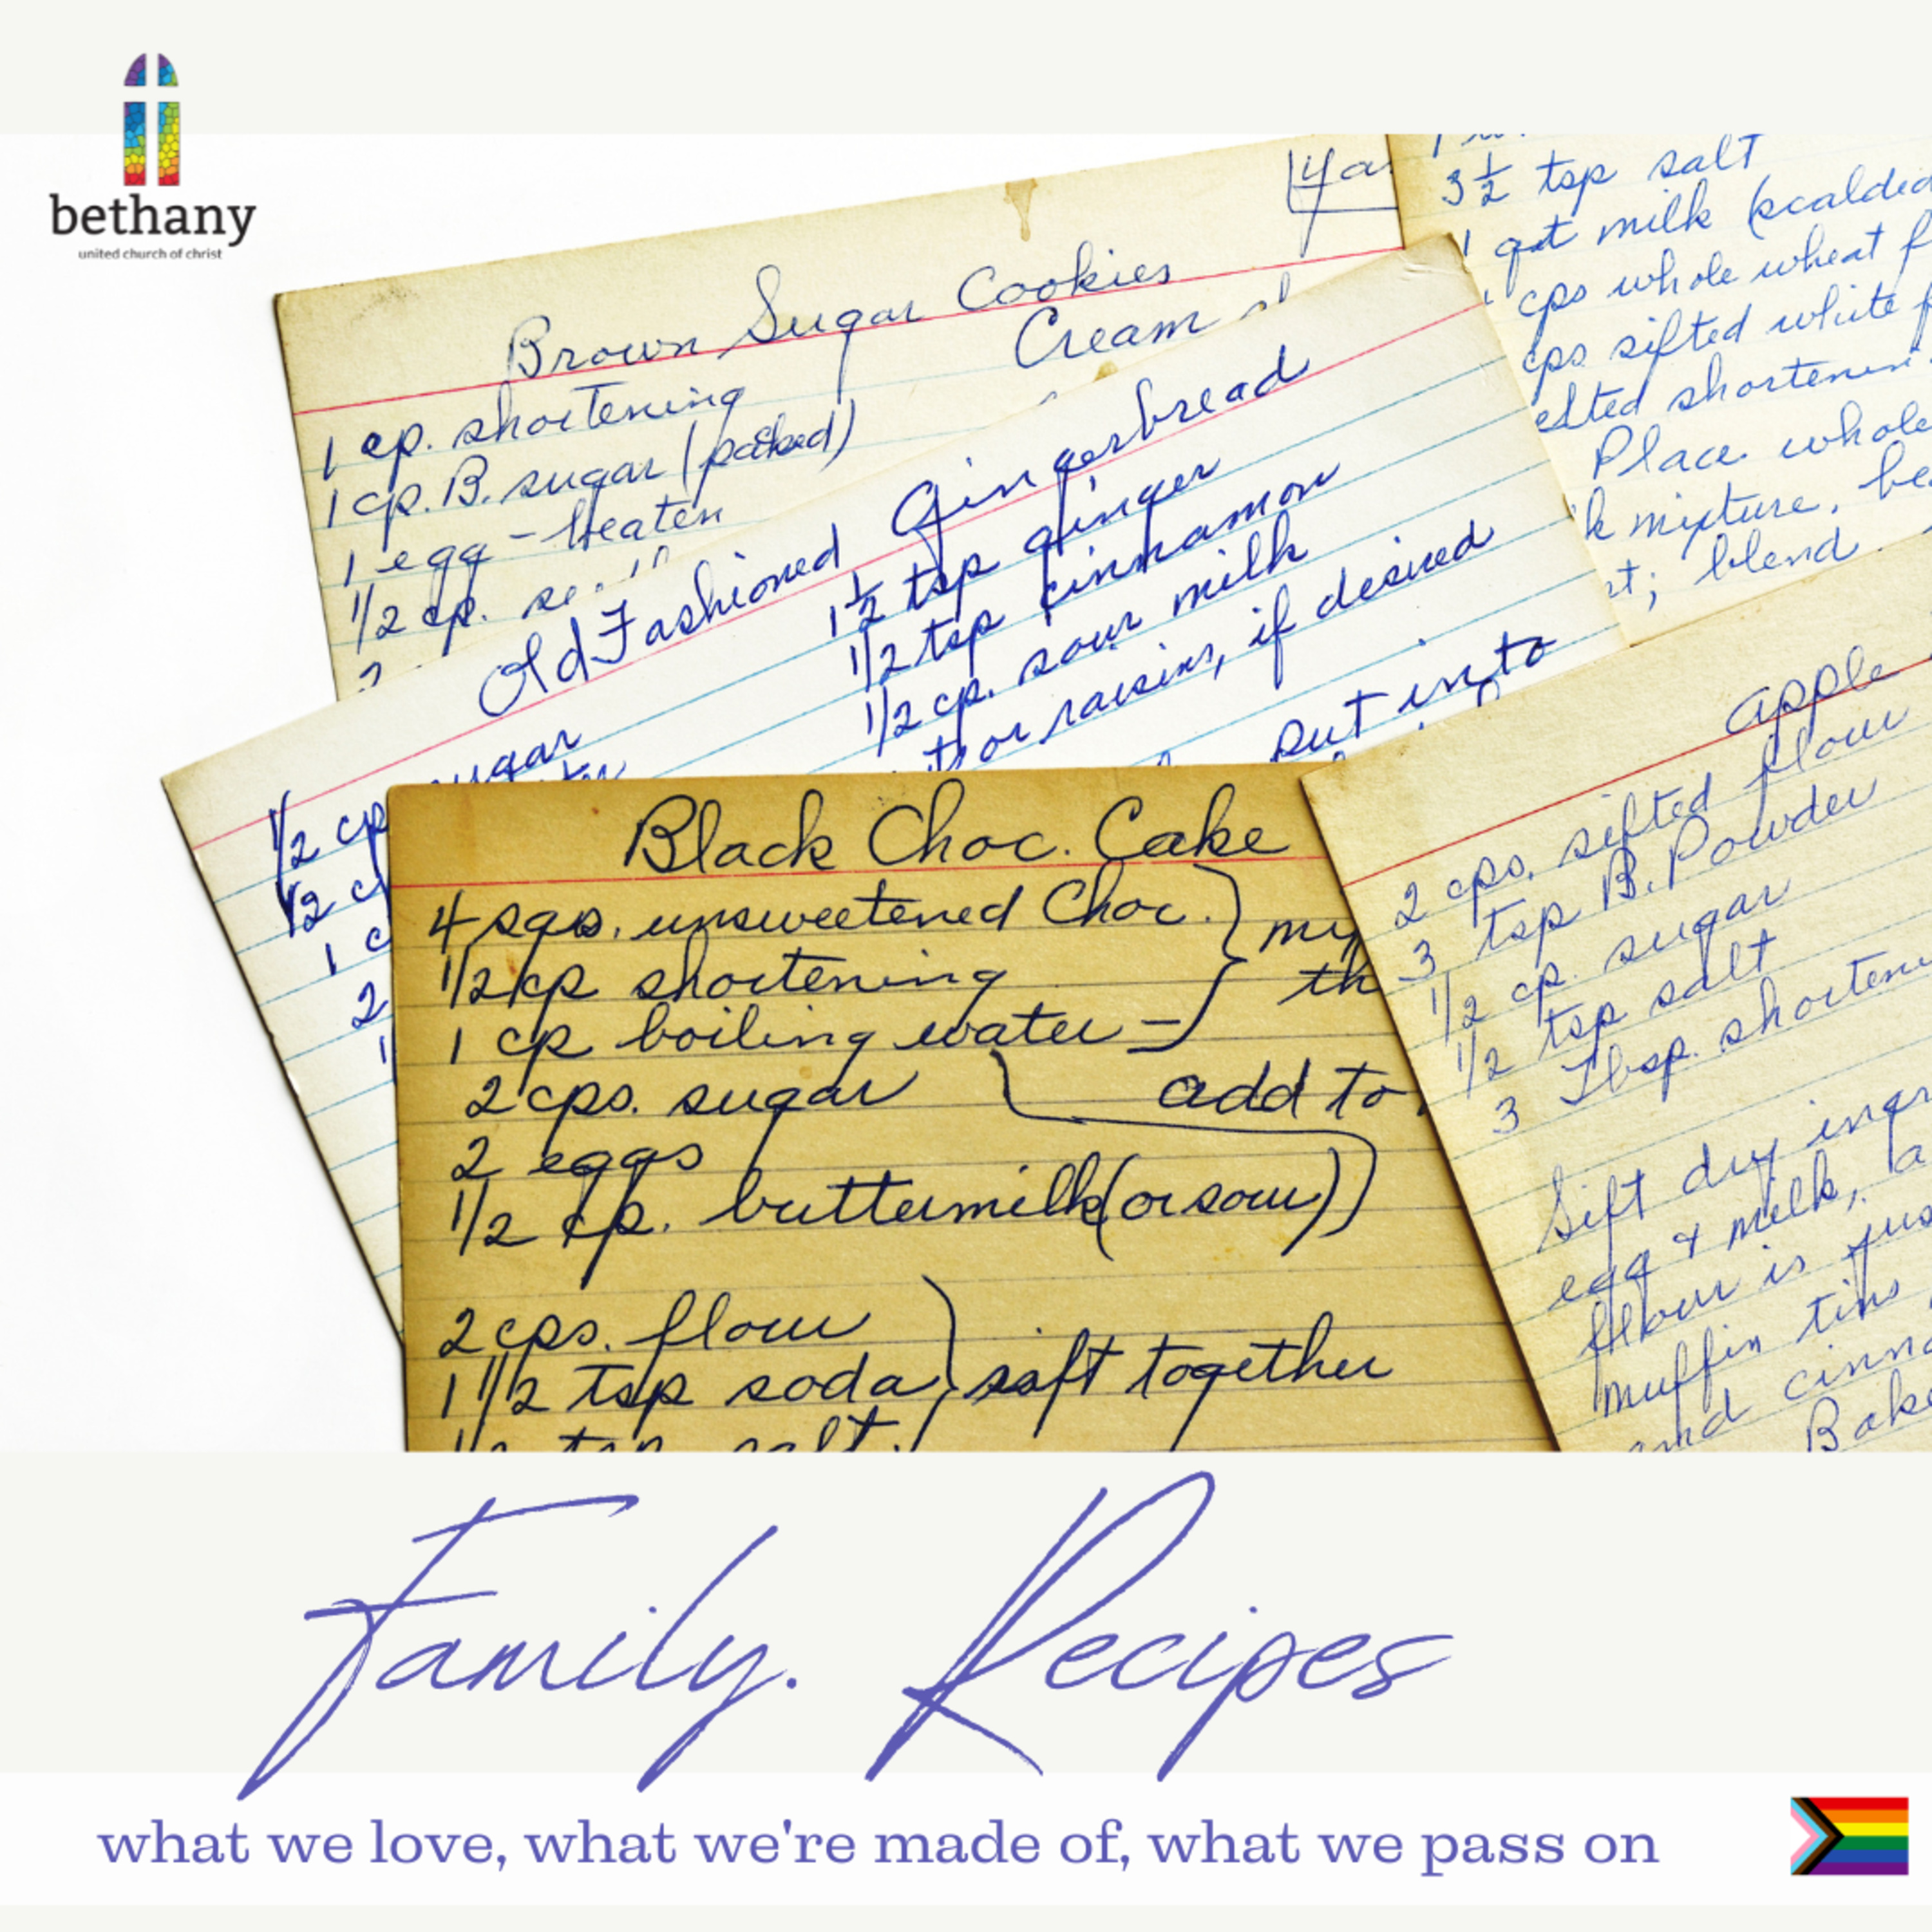 bethany
united church of christ
Brown Sugar Cookies
Cream
1 cp. shortening
1 cp. B. sugar (packed)
1 egg - beaten
1/2 cp.
3 1/2 tsp salt
1 qt milk (scalded
cps whole wheat f
cps sifted white f
elted shortenin
Place whole
k mixture, be
t; blend
Old Fashioned Gingerbread
1 1/2 tsp ginger
1/2 tsp cinnamon
1/2 cp. sour milk
or raisins, if desired
put into
1/2 cp sugar
1/2 c
1 c
2
1
Black Choc. Cake
4 sqs. unsweetened Choc.
1/2 cp shortening
1 cp boiling water -
2 cps. sugar
add to
2 eggs
1/2 cp. buttermilk (or sour)
2 cps. flour
1 1/2 tsp soda sift together
tsp salt
apple
2 cps. sifted flour
3 tsp B. Powder
1/2 cp. sugar
1/2 tsp salt
3 Tbsp. shorteni
Sift dry ingr
egg & milk, a
flour is jus
muffin tins
and cinna
Bake
Family. Recipes
what we love, what we're made of, what we pass on